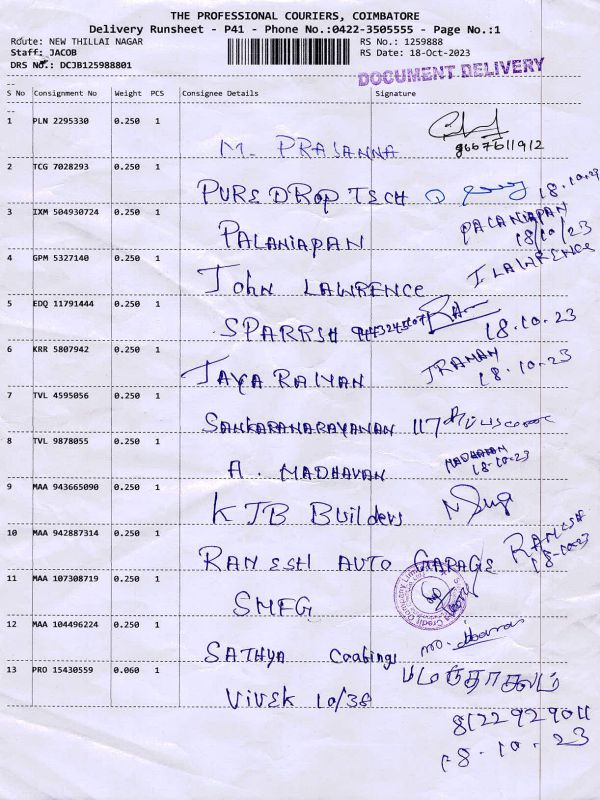 THE PROFESSIONAL COURIERS, COIMBATORE
Delivery Runsheet - P41 - Phone No.:0422-3505555 - Page No.:1
Route: NEW THILLAI NAGAR RS No.: 1259888
Staff: JACOB RS Date: 18-Oct-2023
DRS No.: DCJB125988801
DOCUMENT DELIVERY
S No Consignment No Weight PCS Consignee Details Signature
1 PLN 2295330 0.250 1
M. PRASANNA 9667611912
2 TCG 7028293 0.250 1
PURE DROP TECH 18.10.23
3 IXM 504930724 0.250 1
PALANIAPAN PALANIAPAN
18/10/23
4 GPM 5327140 0.250 1
John LAWRENCE J. LAWRENCE
5 EDQ 11791444 0.250 1
SPARRSH 18.10.23
6 KRR 5807942 0.250 1
JAYA RAMAN JRAMAN
18.10.23
7 TVL 4595056 0.250 1
SANKARANARAYANAN 117
8 TVL 9878055 0.250 1
A. MADHAVAN MADHAVAN
18-10-23
9 MAA 943665090 0.250 1
KJB Builders
10 MAA 942887314 0.250 1
RAMESH AUTO GARAGE RAMESH
18-10-23
11 MAA 107308719 0.250 1
SMFG
12 MAA 104496224 0.250 1
SATHYA Coatings
13 PRO 15430559 0.060 1
VIVEK 10/38
8122929011
18.10.23